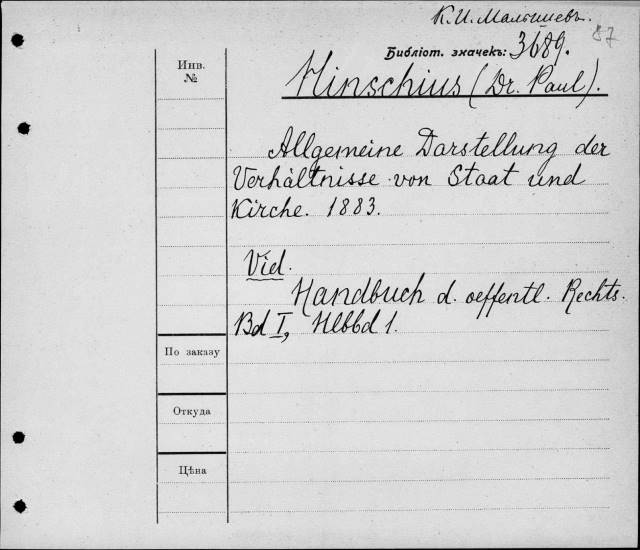 К. И. Малышевъ.
87
Библіот. значекъ: 3689.
Инв.
№
Hinschius (Dr. Paul).
Allgemeine Darstellung der
Verhältnisse von Staat und
Kirche. 1883.
Vid.
Handbuch d. oeffentl. Rechts.
Bd I, Hlbbd 1.
По заказу
Откуда
Цѣна